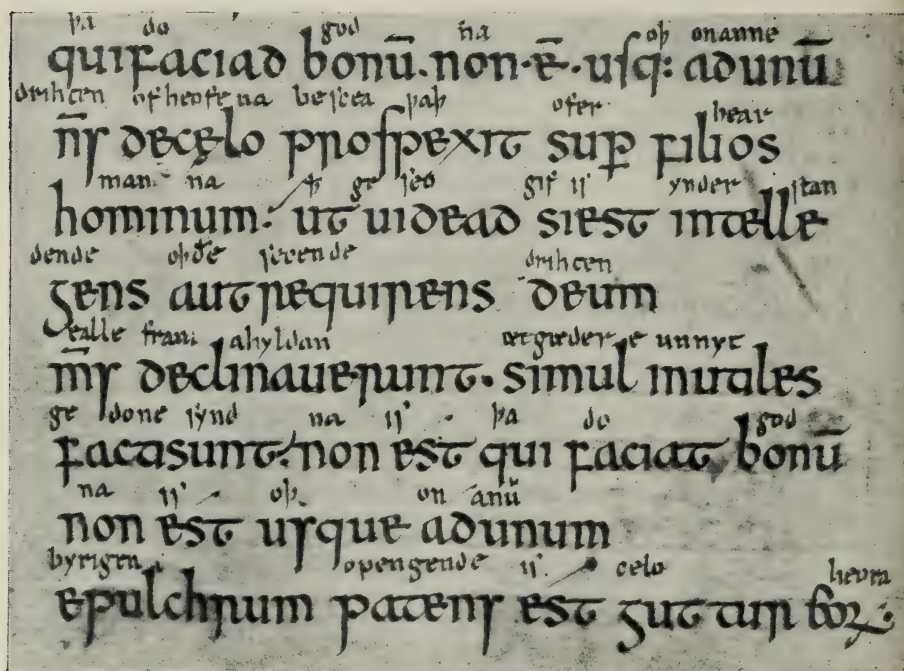 þa do god na oþ onanne
qui faciad bonū. non · ē · usq: ad unū
drihten of heofe na besćea þaþ ofer bear
n̄s de cęlo prospexit sup filios
man na þ ge seo gif is ynder stan
hominum. ut uidead si est intelle
dende oþđe secende drihten
gens aut requirens deum
ealle fram ahyldan ætgæder e unnyt
m̄s declinauerunt. simul inutiles
ge done synd na is þa do god
facta sunt. non est qui faciat bonū
na is oþ on anū
non est usque ad unum
byrigen opengende is celo heora
epulchrum patens est guttur eorꝝ